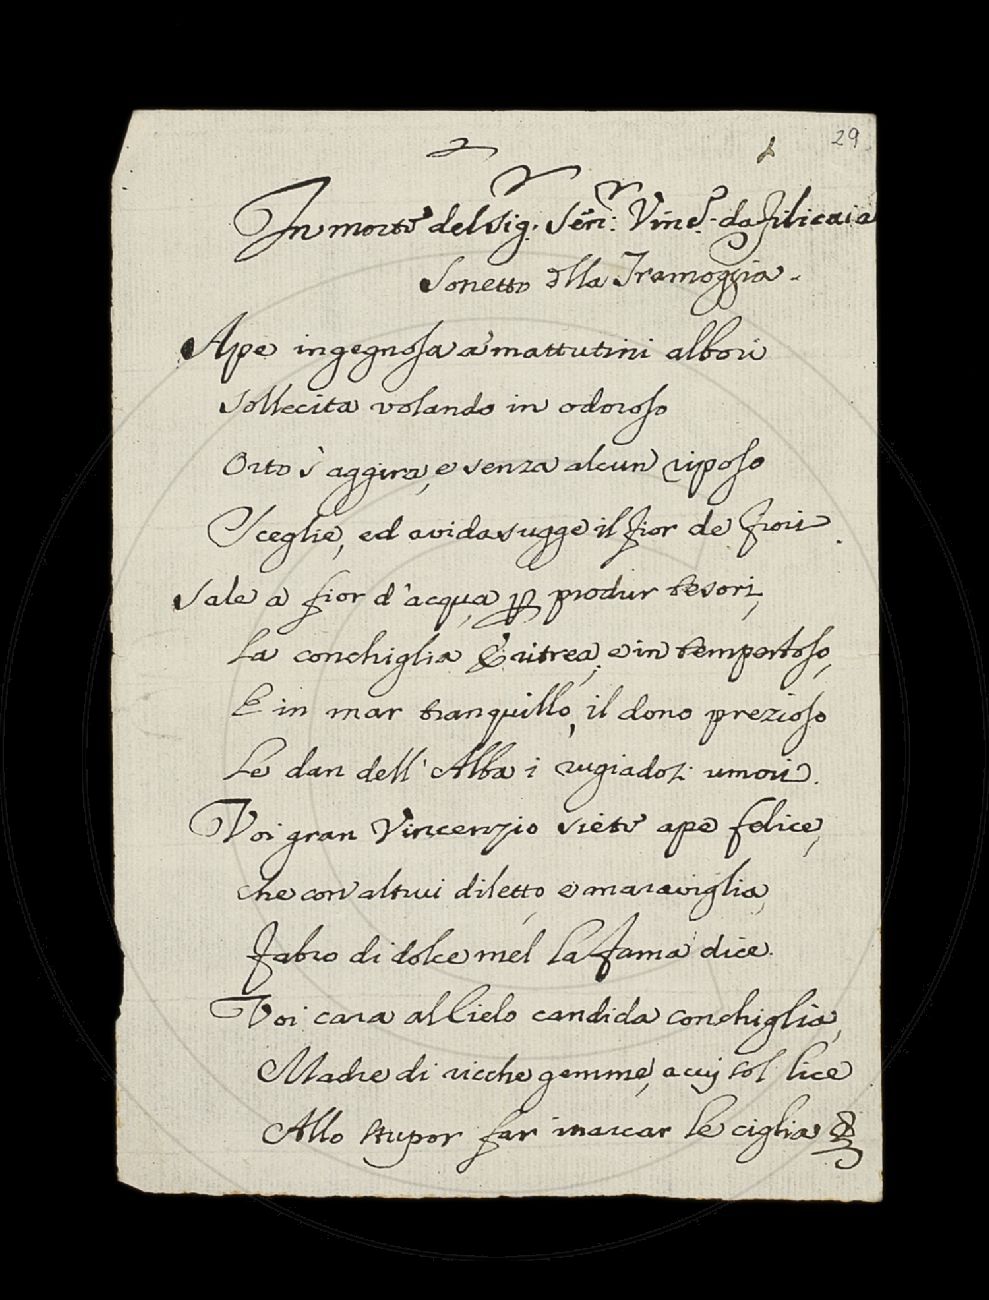 29
In morte del Sig. Sen: Vinc. da Filicaia
Sonetto della Tramoggia.
Ape ingegnosa a' mattutini albori
Sollecita volando in odoroso
Orto s'aggira, e senza alcun riposo
Sceglie, ed avida sugge il fior de fiori.
Sale a fior d'acqua, per produr tesori,
La conchiglia Eritrea, e in tempestoso,
E in mar tranquillo, il dono prezioso
Le dan dell'Alba i rugiadosi umori.
Voi gran Vincenzio siete ape felice,
che con altrui diletto, e maraviglia,
Fabro di dolce mel la Fama dice.
Voi cara al Cielo candida conchiglia,
Madre di ricche gemme, a cuj sol lice
Allo stupor far inarcar le ciglia